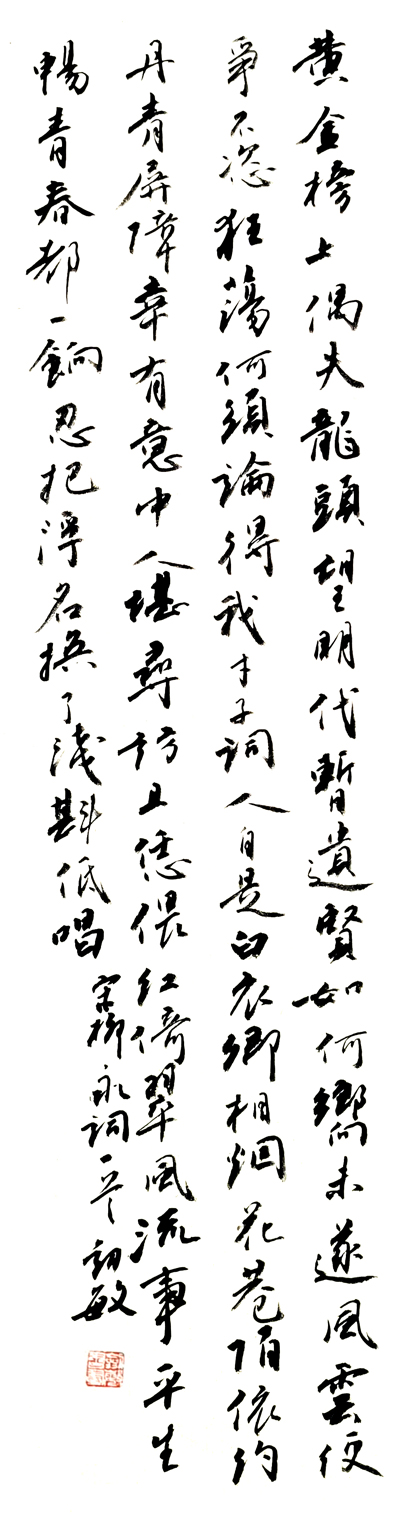 黄金榜上偶失龍頭望明代暫遺賢如何嚮未遂風雲便
爭不恣狂蕩何須論得喪才子詞人自是白衣卿相烟花巷陌依約
丹青屏障幸有意中人堪尋訪且恁偎红倚翠風流事平生
暢青春都一餉忍把浮名換了淺斟低唱
宋柳永詞一首 敏